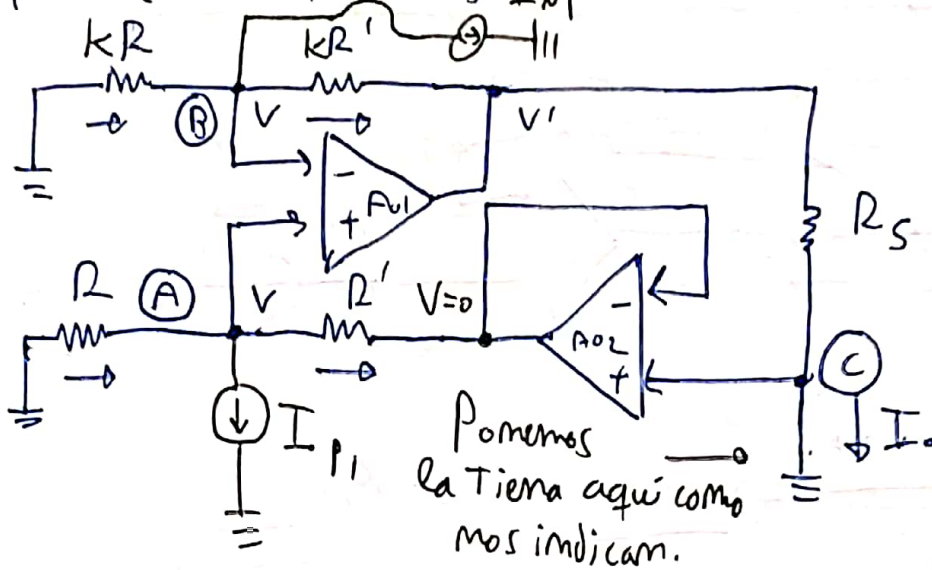 kR
kR'
B
V
V'
-
+
AO1
RS
R
A
V
R'
V=0
-
AO2
+
C
IP1
Ponemos
la Tierra aquí como
nos indican.